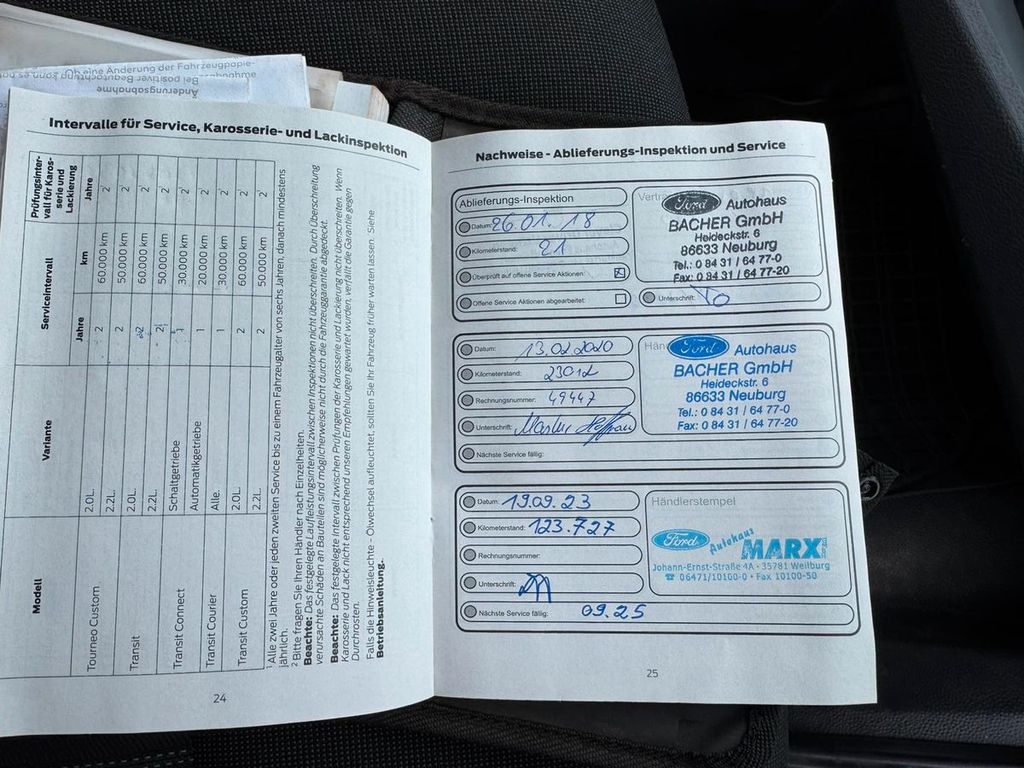 Ob eine Änderung der Fahrzeugpapie-
Bei positiver Begutachtung kann es
Änderungsabnahme
Intervalle für Service, Karosserie- und Lackinspektion
Modell Variante Serviceintervall Prüfungsinter-
vall für Karos-
serie und
Lackierung
Jahre km Jahre
Tourneo Custom 2.0L. 2 60.000 km 2
2.2L. 2 50.000 km 2
Transit 2.0L. 2 60.000 km 2
2.2L. 2 50.000 km 2
Transit Connect Schaltgetriebe 1 30.000 km 2
Automatikgetriebe 1 20.000 km 2
Transit Courier Alle. 1 30.000 km 2
Transit Custom 2.0L. 2 60.000 km 2
2.2L. 2 50.000 km 2
1 Alle zwei Jahre oder jeden zweiten Service bis zu einem Fahrzeugalter von sechs Jahren, danach mindestens
jährlich.
2 Bitte fragen Sie Ihren Händler nach Einzelheiten.
Beachte: Das festgelegte Laufleistungsintervall zwischen Inspektionen nicht überschreiten. Durch Überschreitung
verursachte Schäden an Bauteilen sind möglicherweise nicht durch die Fahrzeuggarantie abgedeckt.
Beachte: Das festgelegte Intervall zwischen Prüfungen der Karosserie und Lackierung nicht überschreiten. Wenn
Karosserie und Lack nicht entsprechend unseren Empfehlungen gewartet wurden, verfällt die Garantie gegen
Durchrosten.
Falls die Hinweisleuchte - Ölwechsel aufleuchtet, sollten Sie Ihr Fahrzeug früher warten lassen. Siehe
Betriebsanleitung.
24
Nachweise - Ablieferungs-Inspektion und Service
Ablieferungs-Inspektion
Datum: 26.01.18
Kilometerstand: 21
Überprüft auf offene Service Aktionen:
Offene Service Aktionen abgearbeitet:
Ford Autohaus
BACHER GmbH
Heideckstr. 6
86633 Neuburg
Tel.: 0 84 31 / 64 77-0
Fax: 0 84 31 / 64 77-20
Unterschrift:
Datum: 13.02.2020
Kilometerstand: 23012
Rechnungsnummer: 49447
Unterschrift:
Nächste Service fällig:
Ford Autohaus
BACHER GmbH
Heideckstr. 6
86633 Neuburg
Tel.: 0 84 31 / 64 77-0
Fax: 0 84 31 / 64 77-20
Datum: 19.09.23
Kilometerstand: 123.727
Rechnungsnummer:
Unterschrift:
Nächste Service fällig: 09.25
Händlerstempel
Ford Autohaus MARX
Johann-Ernst-Straße 4A · 35781 Weilburg
☎ 06471/10100-0 · Fax 10100-50
25